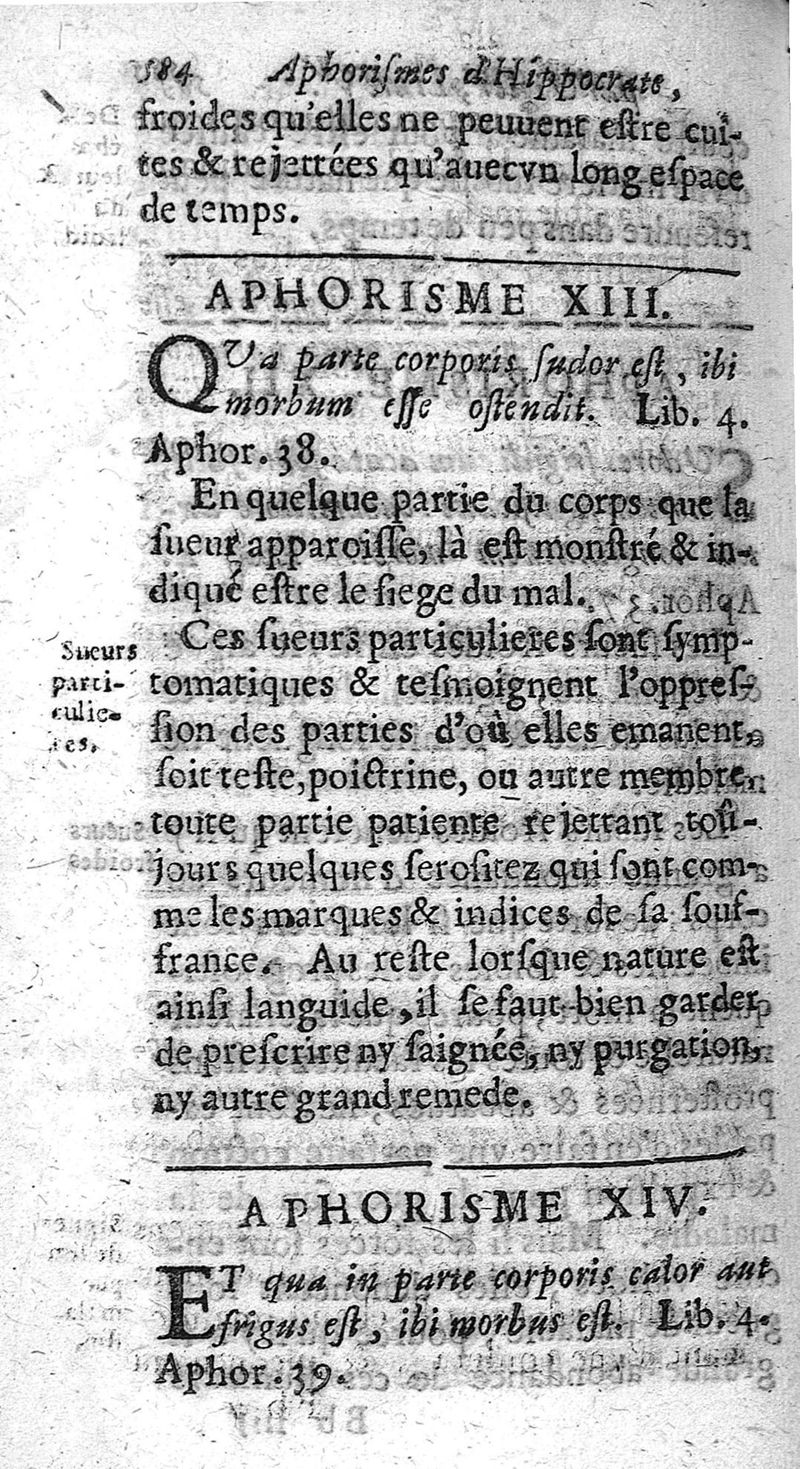 584 Aphoriſmes d'Hippocrate,
froides qu'elles ne peuuent eſtre cui-
tes & rejettées qu'auec vn long eſpace
de temps.
APHORISME XIII.
QVa parte corporis ſudor eſt, ibi
morbum eſſe oſtendit. Lib. 4.
Aphor. 38.
En quelque partie du corps que la
ſueur apparoiſſe, là eſt monſtré & in-
diqué eſtre le ſiege du mal.
Ces ſueurs particulieres ſont ſymp-
Sueurs
parti-
culie-
res.
tomatiques & teſmoignent l'oppreſ-
ſion des parties d'où elles emanent,
ſoit teſte, poictrine, ou autre membre,
toute partie patiente rejettant toû-
jours quelques ſeroſitez qui ſont com-
me les marques & indices de ſa ſouf-
france. Au reſte lorſque nature eſt
ainſi languide, il ſe faut bien garder
de preſcrire ny ſaignée, ny purgation,
ny autre grand remede.
APHORISME XIV.
ET qua in parte corporis calor aut
frigus eſt, ibi morbus eſt. Lib. 4.
Aphor. 39.